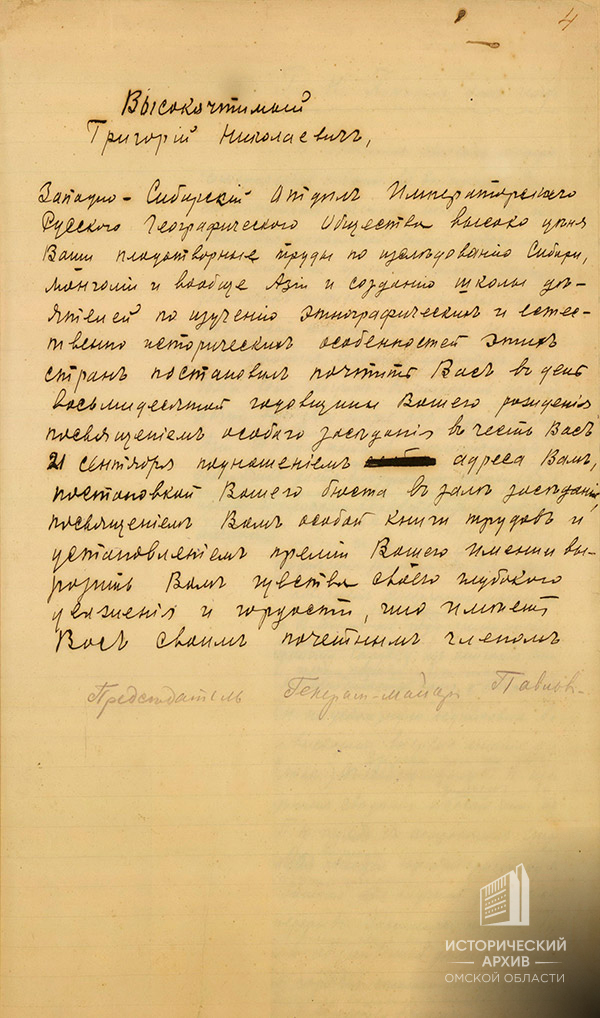 4
Высокочтимый
Григорій Николаевичъ,
Западно-Сибирскій Отдѣлъ Императорскаго
Русского Географического Общества высоко цѣня
Ваши плодотворные труды по изслѣдованію Сибири,
Монголіи и вообще Азіи и созданію школы дѣ-
ятелей по изученію этнографическихъ и естес-
твенно историческихъ особенностей этихъ
странъ постановилъ почтить Васъ въ день
восьмидесятой годовщины Вашего рожденія
посвященіемъ особаго засѣданія въ честь Васъ
21 сентября поднесеніемъ адреса Вамъ,
постановкой Вашего бюста въ залѣ засѣданій,
посвященіемъ Вамъ особой книги трудовъ и
установленіемъ преміи Вашего имени вы-
розить Вамъ чувства своего глубокого
уваженія и гордости, что имѣетъ
Васъ своимъ почетнымъ членомъ
Предсѣдатель Генерал-майоръ Павлов
ИСТОРИЧЕСКИЙ
АРХИВ
ОМСКОЙ ОБЛАСТИ